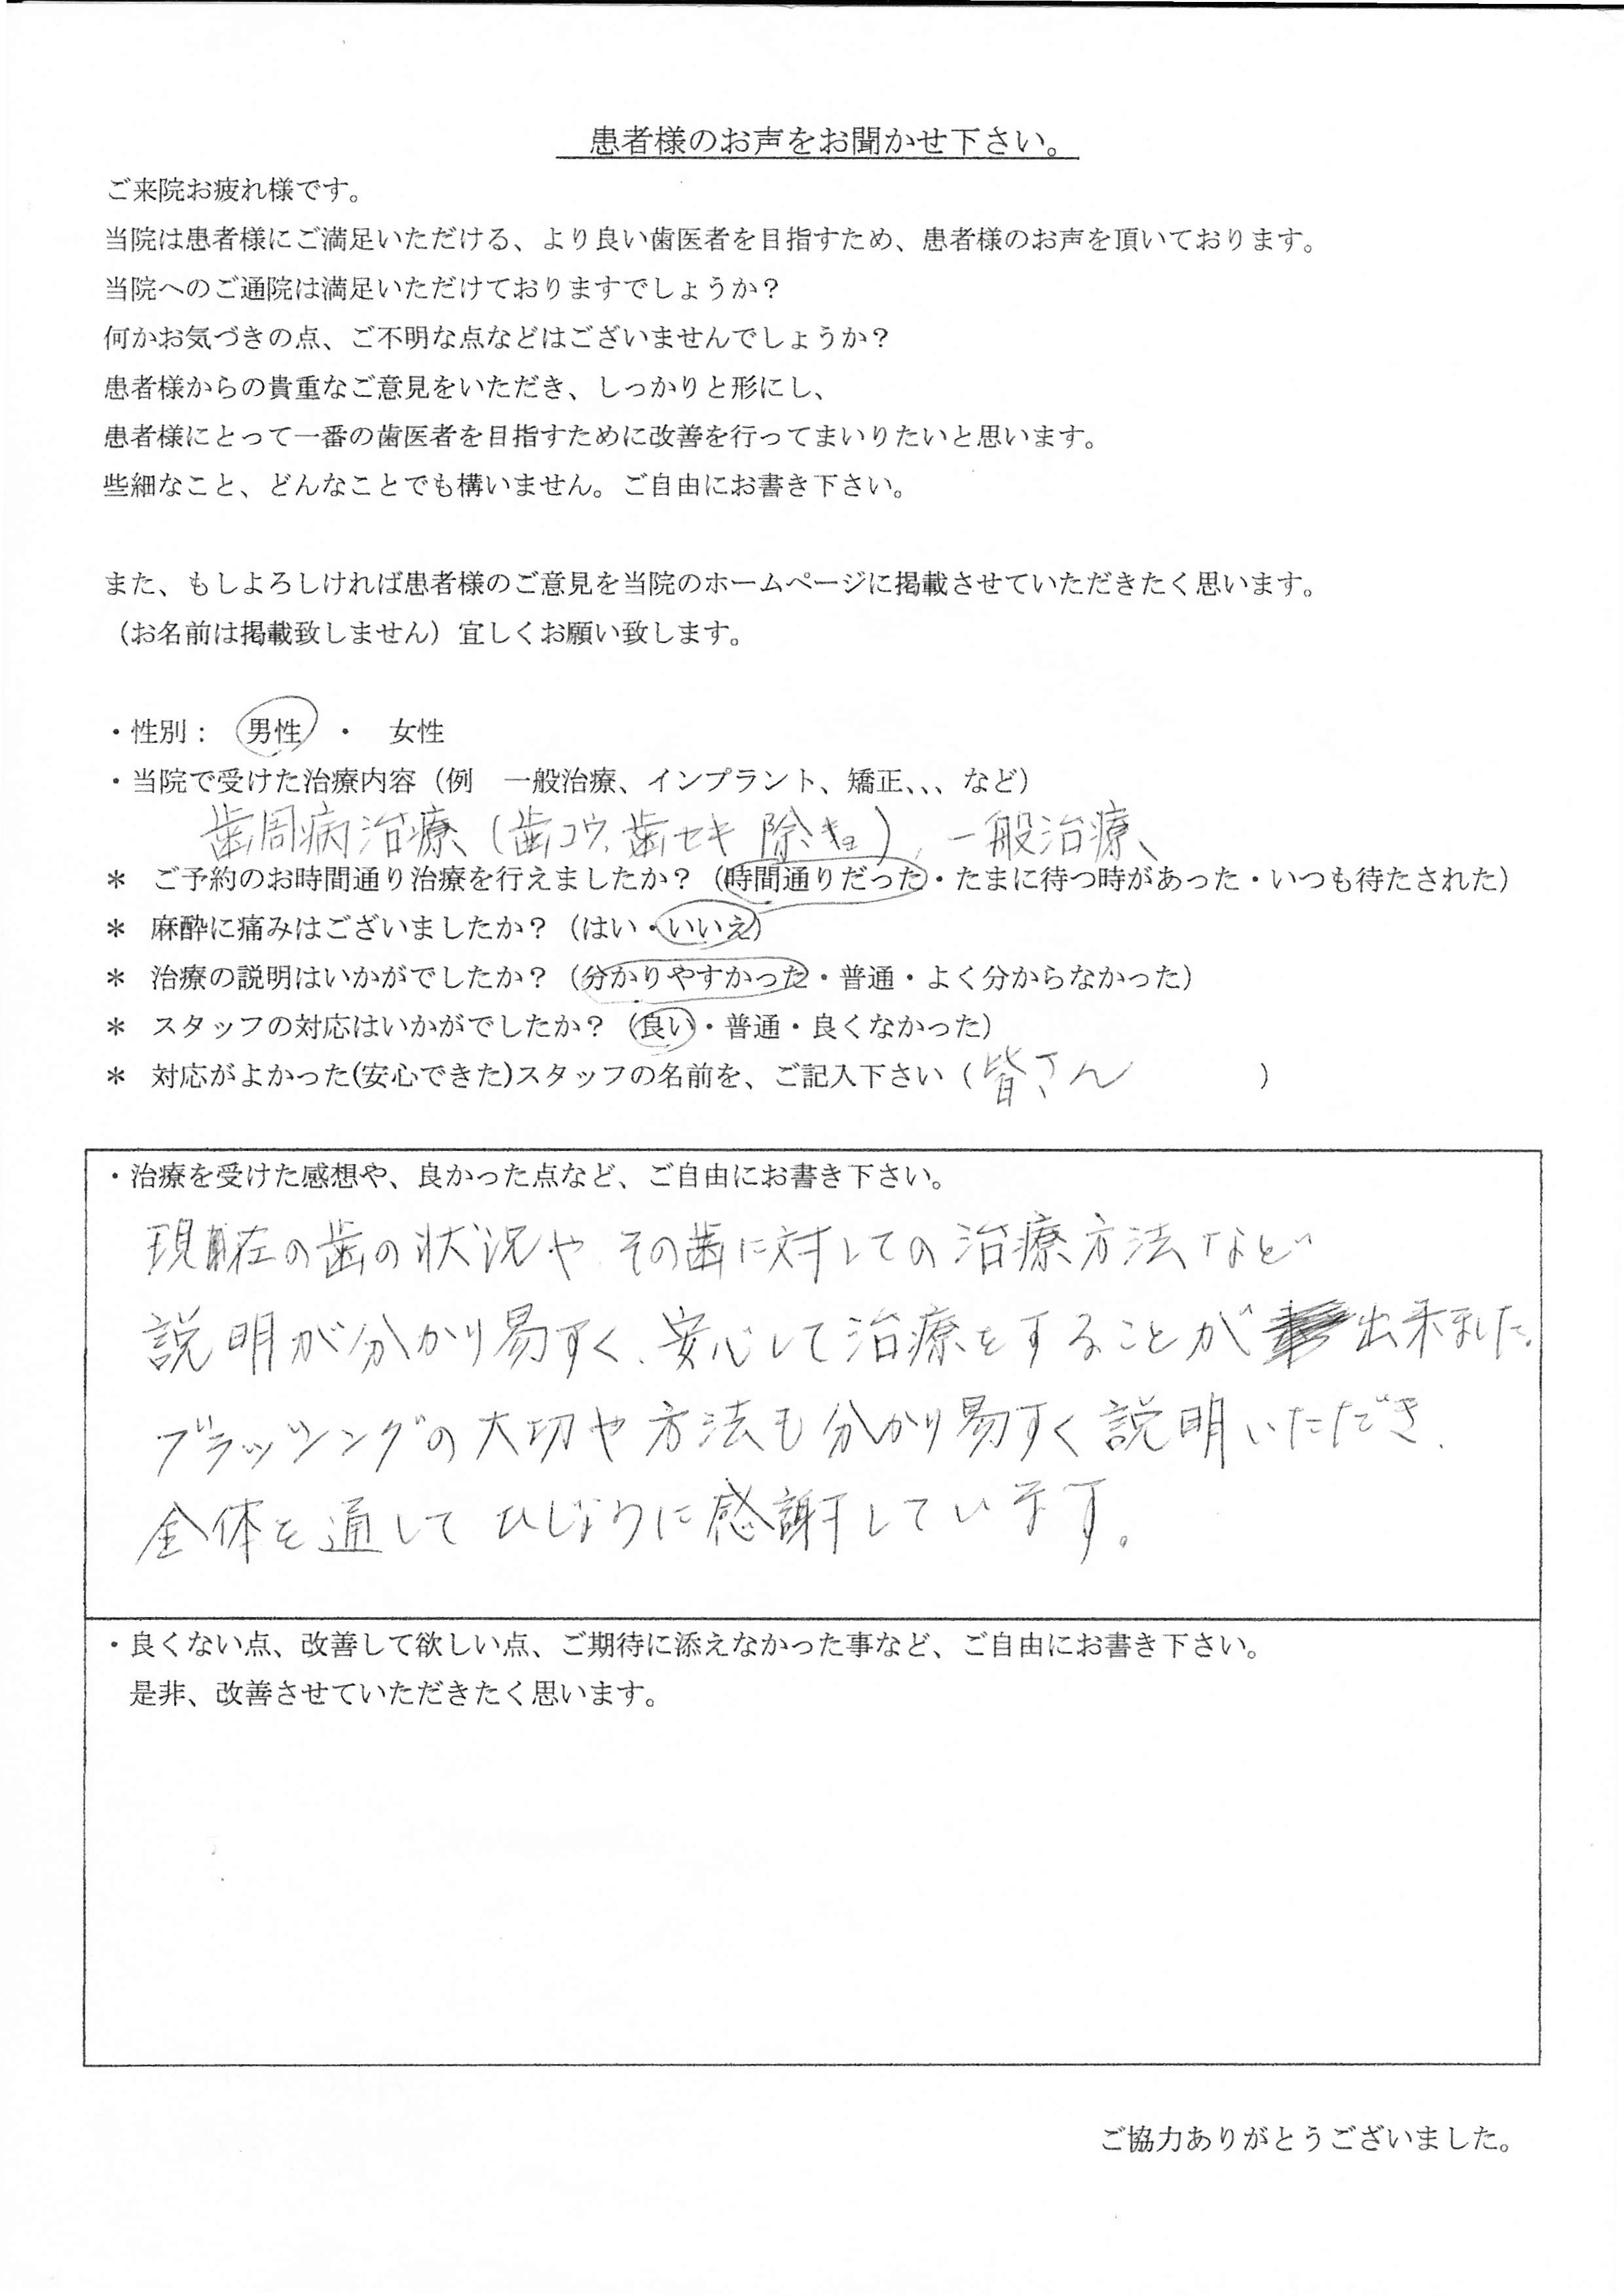 患者様のお声をお聞かせ下さい。
ご来院お疲れ様です。
当院は患者様にご満足いただける、より良い歯医者を目指すため、患者様のお声を頂いております。
当院へのご通院は満足いただけておりますでしょうか？
何かお気づきの点、ご不明な点などはございませんでしょうか？
患者様からの貴重なご意見をいただき、しっかりと形にし、
患者様にとって一番の歯医者を目指すために改善を行ってまいりたいと思います。
些細なこと、どんなことでも構いません。ご自由にお書き下さい。
また、もしよろしければ患者様のご意見を当院のホームページに掲載させていただきたく思います。
（お名前は掲載致しません）宜しくお願い致します。
・性別： 男性 ・ 女性
・当院で受けた治療内容（例　一般治療、インプラント、矯正、、、など）
歯周病治療（歯コウ、歯セキ 除きょ）、一般治療、
＊ ご予約のお時間通り治療を行えましたか？（時間通りだった・たまに待つ時があった・いつも待たされた）
＊ 麻酔に痛みはございましたか？（はい・いいえ）
＊ 治療の説明はいかがでしたか？（分かりやすかった・普通・よく分からなかった）
＊ スタッフの対応はいかがでしたか？（良い・普通・良くなかった）
＊ 対応がよかった(安心できた)スタッフの名前を、ご記入下さい（皆さん　　　）
・治療を受けた感想や、良かった点など、ご自由にお書き下さい。
現在の歯の状況や その歯に対しての 治療方法など
説明が分かり易すく、安心して治療をすることが 出来ました。
ブラッツングの大切や方法も分かり易すく説明いただき、
全体を通して ひじょうに感謝しています。
・良くない点、改善して欲しい点、ご期待に添えなかった事など、ご自由にお書き下さい。
是非、改善させていただきたく思います。
ご協力ありがとうございました。